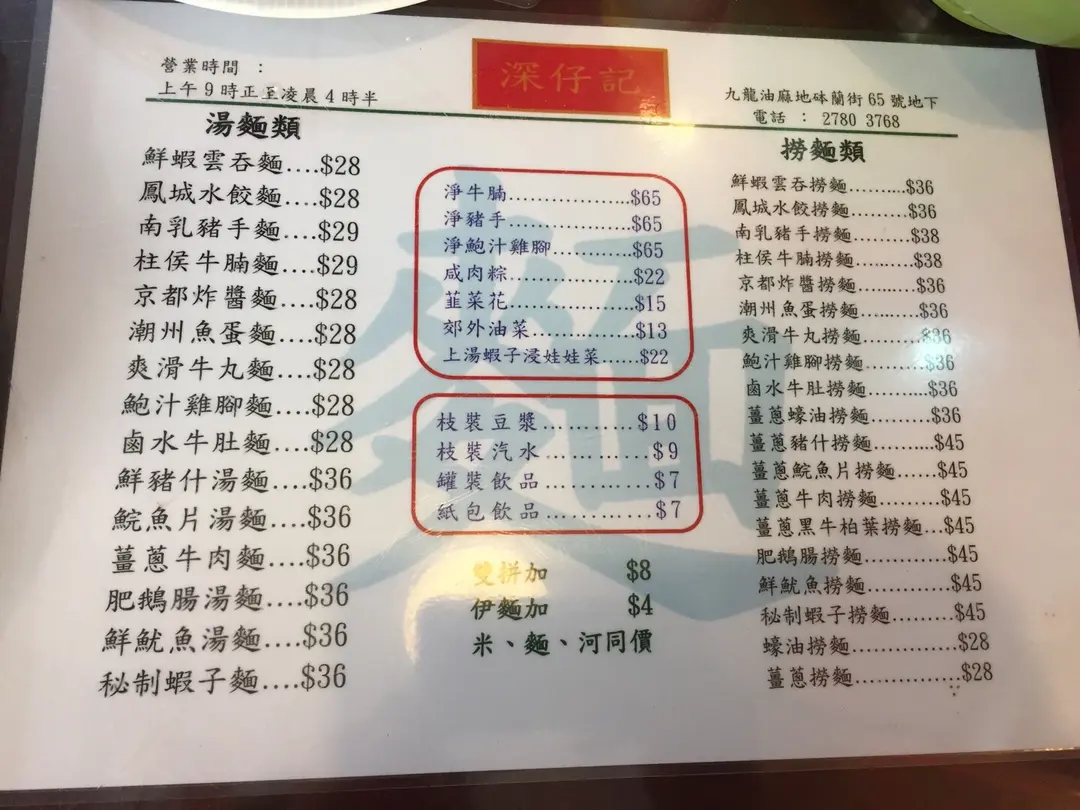 深仔記
營業時間 :
上午9時正至凌晨4時半
九龍油麻地砵蘭街65號地下
電話 : 2780 3768
湯麵類
鮮蝦雲吞麵....$28
鳳城水餃麵....$28
南乳豬手麵....$29
柱侯牛腩麵....$29
京都炸醬麵....$28
潮州魚蛋麵....$28
爽滑牛丸麵....$28
鮑汁雞腳麵....$28
鹵水牛肚麵....$28
鮮豬什湯麵....$36
鯇魚片湯麵....$36
薑蔥牛肉麵....$36
肥鵝腸湯麵....$36
鮮魷魚湯麵....$36
秘制蝦子麵....$36
淨牛腩....................$65
淨豬手....................$65
淨鮑汁雞腳.............$65
咸肉粽....................$22
韮菜花....................$15
郊外油菜................$13
上湯蝦子浸娃娃菜......$22
枝裝豆漿............$10
枝裝汽水............$9
罐裝飲品............$7
紙包飲品............$7
雙拼加 $8
伊麵加 $4
米、麵、河同價
撈麵類
鮮蝦雲吞撈麵..........$36
鳳城水餃撈麵..........$36
南乳豬手撈麵..........$38
柱侯牛腩撈麵..........$38
京都炸醬撈麵..........$36
潮州魚蛋撈麵..........$36
爽滑牛丸撈麵..........$36
鮑汁雞腳撈麵..........$36
鹵水牛肚撈麵..........$36
薑蔥蠔油撈麵..........$36
薑蔥豬什撈麵..........$45
薑蔥鯇魚片撈麵.......$45
薑蔥牛肉撈麵..........$45
薑蔥黑牛柏葉撈麵...$45
肥鵝腸撈麵.............$45
鮮魷魚撈麵.............$45
秘制蝦子撈麵..........$45
蠔油撈麵................$28
薑蔥撈麵................$28